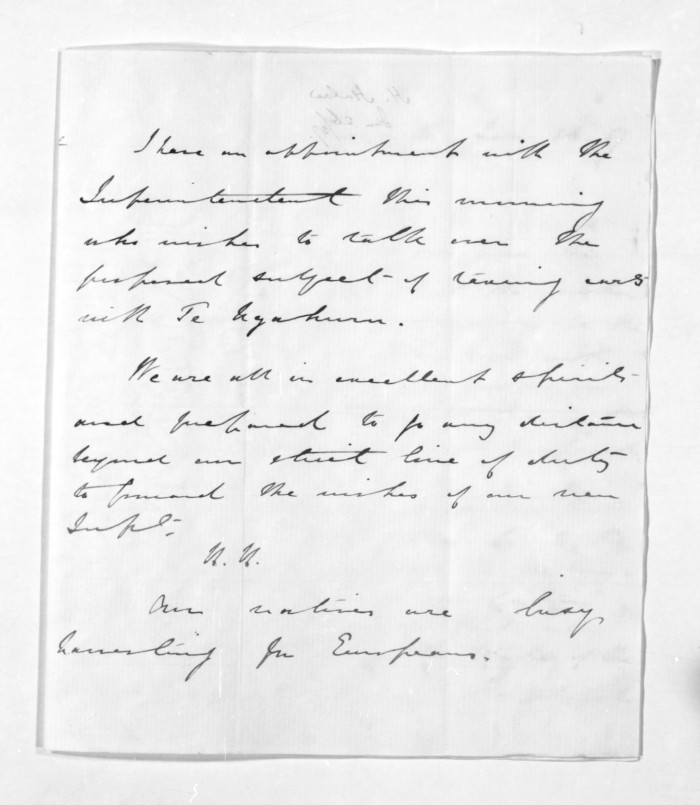 I have an appointment with the
Superintendent this morning
who wishes to talk over the
proposed subject of
with Te Ngahuru.
We are all in excellent spirits
and prepared to go any distance
beyond our strict line of duty
to forward the wishes of our new
Supt.
H. H.
Our natives are busy
harvesting for Europeans.